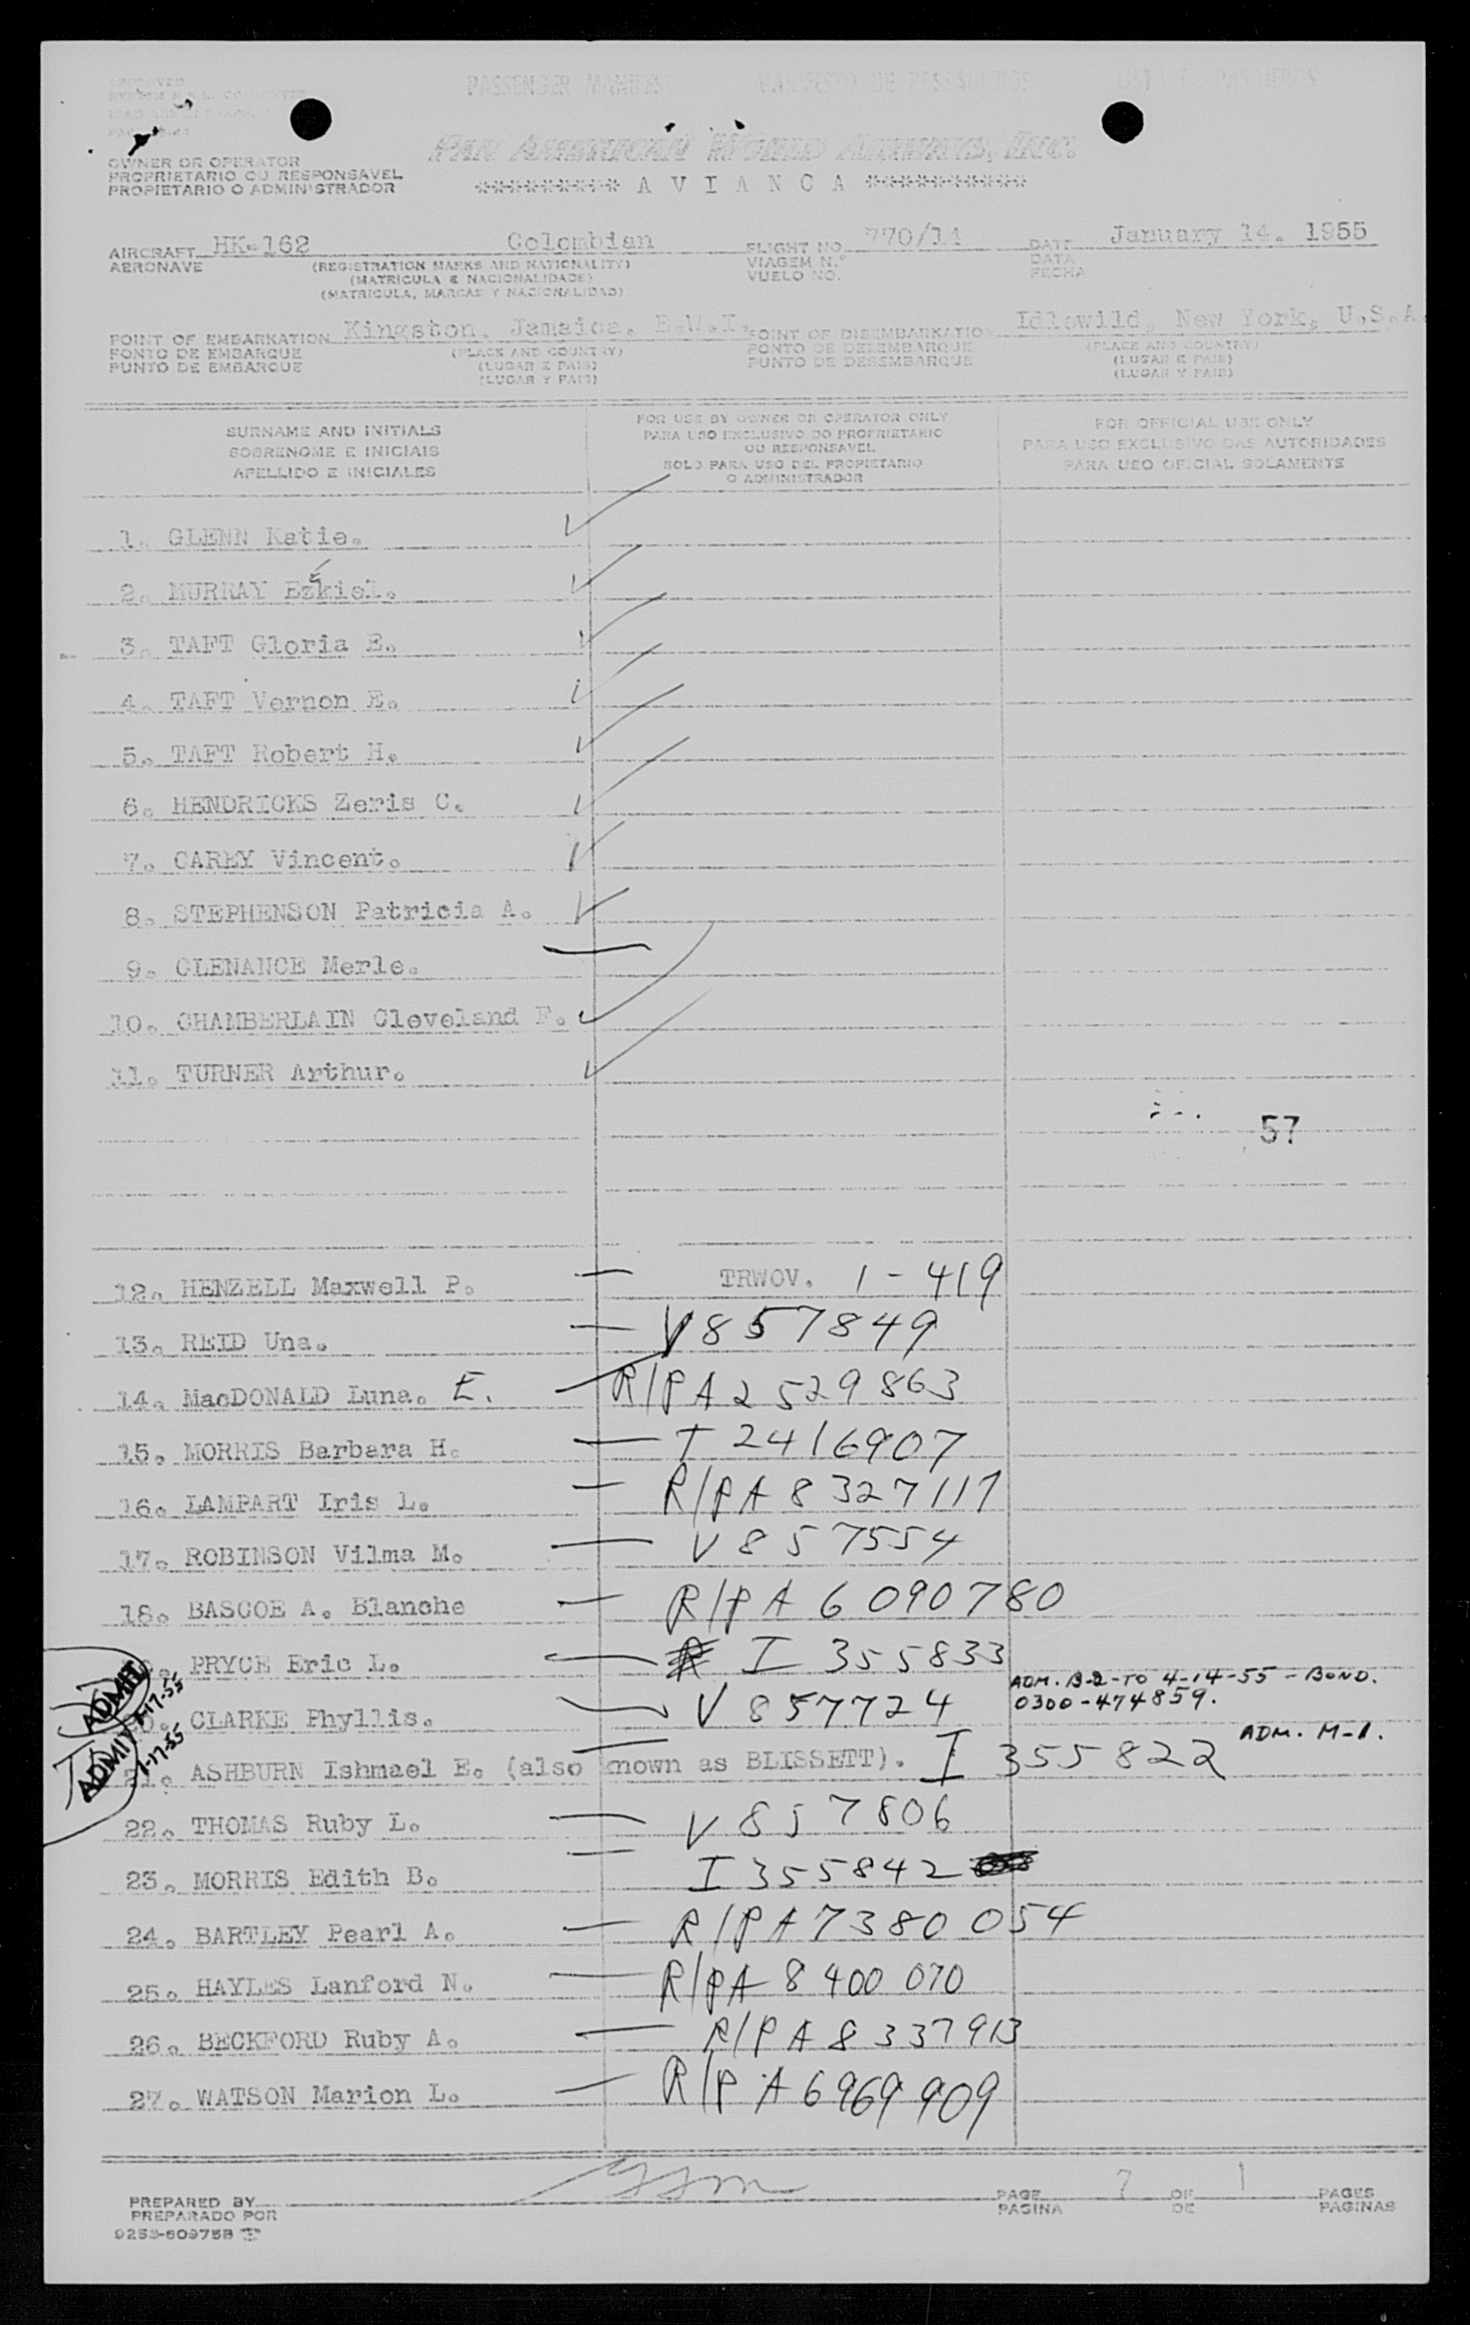 PASSENGER MANIFEST MANIFESTO DE PASSAGEIROS LISTA DE PASAJEROS
PAN AMERICAN WORLD AIRWAYS, INC.
OWNER OR OPERATOR
PROPRIETARIO OU RESPONSAVEL
PROPIETARIO O ADMINISTRADOR
********* A V I A N C A **********
AIRCRAFT HK-162 Colombian FLIGHT NO 770/14 DATE January 14. 1955
AERONAVE (REGISTRATION MARKS AND NATIONALITY) VIAGEM N.º DATA
(MATRICULA E NACIONALIDADE) VUELO NO. FECHA
(MATRICULA, MARCAS Y NACIONALIDAD)
POINT OF EMBARKATION Kingston, Jamaica. B.W.I. POINT OF DISEMBARKATION Idlewild, New York, U.S.A.
PONTO DE EMBARQUE (PLACE AND COUNTRY) PONTO DE DESEMBARQUE (PLACE AND COUNTRY)
PUNTO DE EMBARQUE (LUGAR E PAIS) PUNTO DE DESEMBARQUE (LUGAR E PAIS)
(LUGAR Y PAIS) (LUGAR Y PAIS)
SURNAME AND INITIALS FOR USE BY OWNER OR OPERATOR ONLY FOR OFFICIAL USE ONLY
SOBRENOME E INICIAIS PARA USO EXCLUSIVO DO PROPRIETARIO PARA USO EXCLUSIVO DAS AUTORIDADES
OU RESPONSAVEL
APELLIDO E INICIALES SOLO PARA USO DEL PROPIETARIO PARA USO OFICIAL SOLAMENTE
O ADMINISTRADOR
1. GLENN Katie.
2. MURRAY Ezkiel. E
3. TAFT Gloria E.
4. TAFT Vernon E.
5. TAFT Robert H.
6. HENDRICKS Zeris C.
7. CAREY Vincent.
8. STEPHENSON Patricia A.
9. CLENANCE Merle.
10. CHAMBERLAIN Cleveland F.
11. TURNER Arthur.
57
12. HENZELL Maxwell P. TRWOV. 1-419
13. REID Una. V857849
14. MacDONALD Luna. E. R/P A2529863
15. MORRIS Barbara H. T 2416907
16. LAMPART Iris L. R/P A 8327117
17. ROBINSON Vilma M. V 857554
18. BASCOE A. Blanche R/P A 6090780
PRYCE Eric L. I 355833
ADM. B-2-TO 4-14-55 - BOND.
0300-474859.
CLARKE Phyllis. V 857724
ADM. M-1.
21. ASHBURN Ishmael E. (also known as BLISSETT). I 355822
ADMIT 1-17-55
ADMIT 1-17-55
22. THOMAS Ruby L. V 857806
23. MORRIS Edith B. I 355842
24. BARTLEY Pearl A. R/P A 7380054
25. HAYLES Lanford N. R/P A 8400070
26. BECKFORD Ruby A. R/P A 8337913
27. WATSON Marion L. R/P A 6969909
PREPARED BY PAGE 7 OF 1 PAGES
PREPARADO POR PAGINA DE PAGINAS